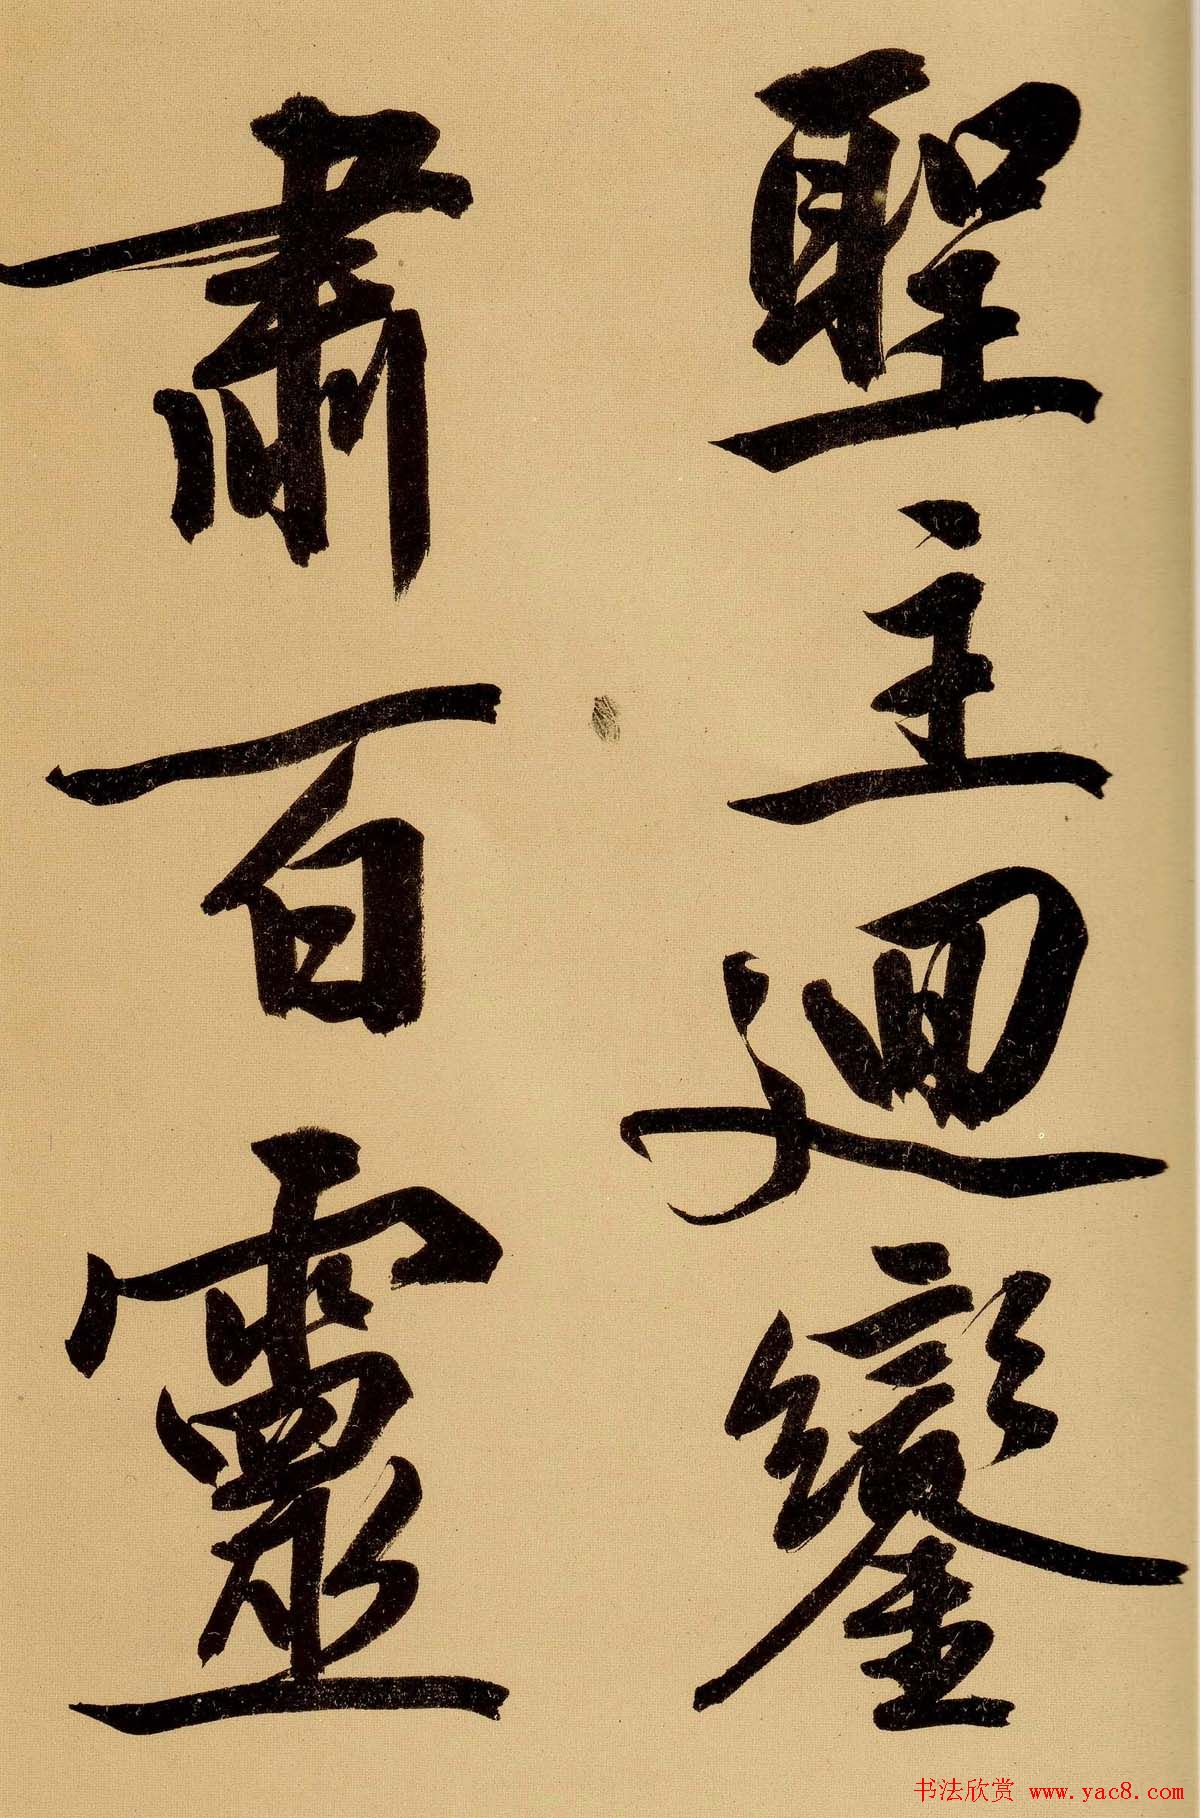 聖主迴鑾
肅百靈
书法欣赏 www.yac8.com